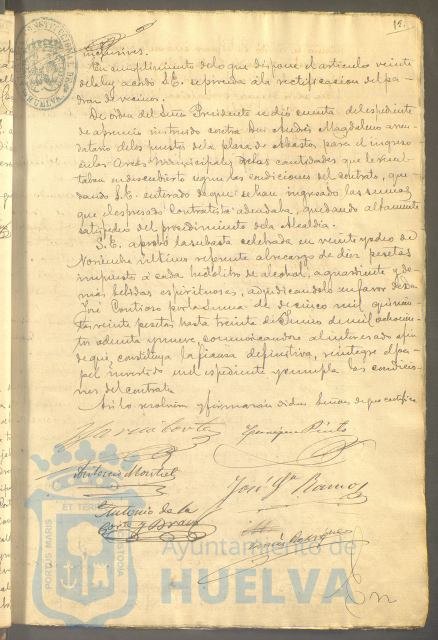 12.
inclusives.
En cumplimiento de lo que dispone el artículo veinte
de la ley acordó S.E. se proceda á la rectificacion del pa-
dron de vecinos.
De orden del Señor Presidente se dió cuenta del espediente
de apremio instruido contra Don Andrés Magdaleno arren-
datario de los puestos de la plaza de Abastos para el ingreso
en las Arcas municipales de las cantidades que le resul-
taban en descubierto segun las condiciones del contrato, que-
dando S.E. enterado de que se han ingresado las sumas
que el espresado contratista adeudaba, quedando altamente
satisfecho del procedimiento de la Alcaldía.
S.E. aprobó la subasta celebrada en veinte y dos de
Noviembre último referente al recargo de diez pesetas
impuesto á cada hectólitro de alcohol, aguardiente y de-
más bebidas espirituosas, adjudicandolo en favor de Don
José Contioso por la suma de cinco mil quinien-
tas veinte pesetas hasta treinta de Junio de mil ochocien-
tos ochenta y nueve, comunicandose al interesado afin
de que constituya la fianza definitiva, reintegre el pa-
pel invertido en el espediente y cumpla las condicio-
nes del contrato.
Asi lo resolvieron y firmaron dichos Señores de que certifico
García Cortés
Enrique Pinto
Antonio Montiel
José Gª Ramos
Antonio de la
Corte y Bravo
Rodríguez
PORTUS MARIS ET TERRE CUSTODIA
Ayuntamiento de
HUELVA